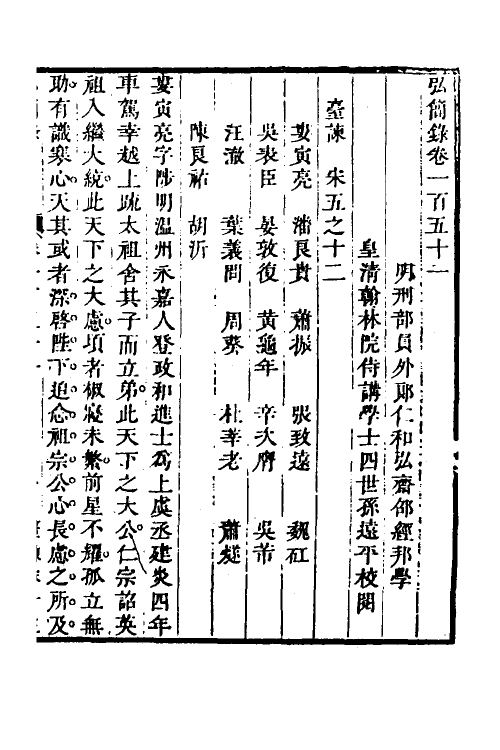 弘簡錄卷一百五十一
明刑部員外郎仁和弘齋邵經邦學
皇清翰林院侍講學士四世孫遠平校閱
臺諫　宋五之十二
婁寅亮　潘良貴　蕭振　張致遠　魏矼
吳表臣　晏敦復　黃龜年　辛次膺　吳芾
汪澈　葉義問　周葵　杜莘老　蕭燧
陳良祐　胡沂
婁寅亮字陟明溫州永嘉人登政和進士爲上虞丞建炎四年
車駕幸越上疏太祖舍其子而立弟此天下之大公仁宗詔英
祖入繼大統此天下之大慮項者椒寢未繁前星不耀孤立無
助有識寒心天其或者深啓陛下追念祖宗公心長慮之所及